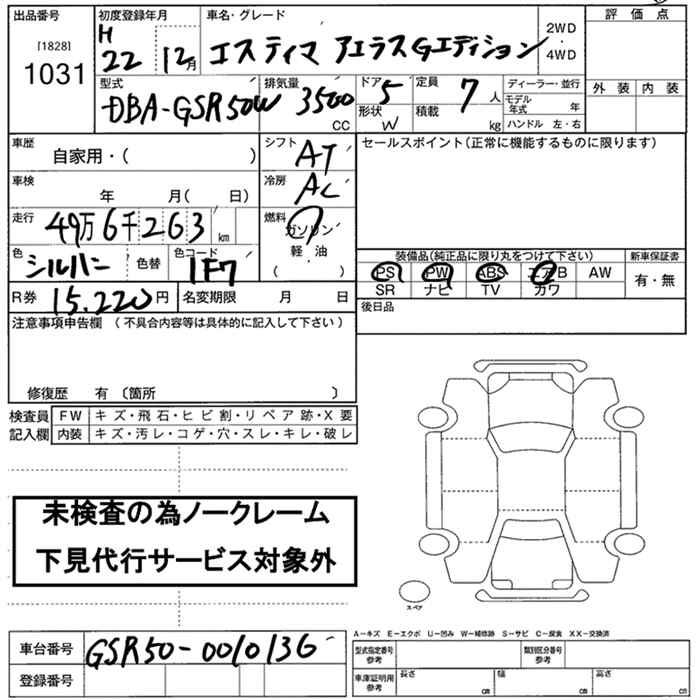 出品番号 初度登録年月 車名・グレード 評価点
[1828] H
1031 22 12月 エスティマ アエラスGエディション 2WD・4WD
型式 排気量 ドア 5 定員 7人 ディーラー・並行 外装 内装
DBA-GSR50W 3500 CC 形状 W 積載 kg モデル年式 年
ハンドル 左・右
車歴 自家用・( ) シフト AT セールスポイント(正常に機能するものに限ります)
車検 年 月( 日) 冷房 AC
走行 49万6千263km 燃料 ガソリン
軽・油
( )
色 シルバー 色替 色コード 1F7 装備品(純正品に限り丸をつけて下さい) 新車保証書
PS PW ABS エアB AW 有・無
SR ナビ TV カワ
R券 15.220円 名変期限 月 日 後日品
注意事項申告欄 (不具合内容等は具体的に記入して下さい)
修復歴 有 〔箇所 〕
検査員 FW キズ・飛石・ヒビ割・リペア跡・X要
記入欄 内装 キズ・汚レ・コゲ・穴・スレ・キレ・破レ
未検査の為ノークレーム
下見代行サービス対象外
スペア
A−キズ E−エクボ U−凹み W−補修跡 S−サビ C−腐食 XX−交換済
車台番号 GSR50-0010136 型式指定番号 参考 類別区分番号 参考
登録番号 車庫証明用 参考 長さ cm 幅 cm 高さ cm